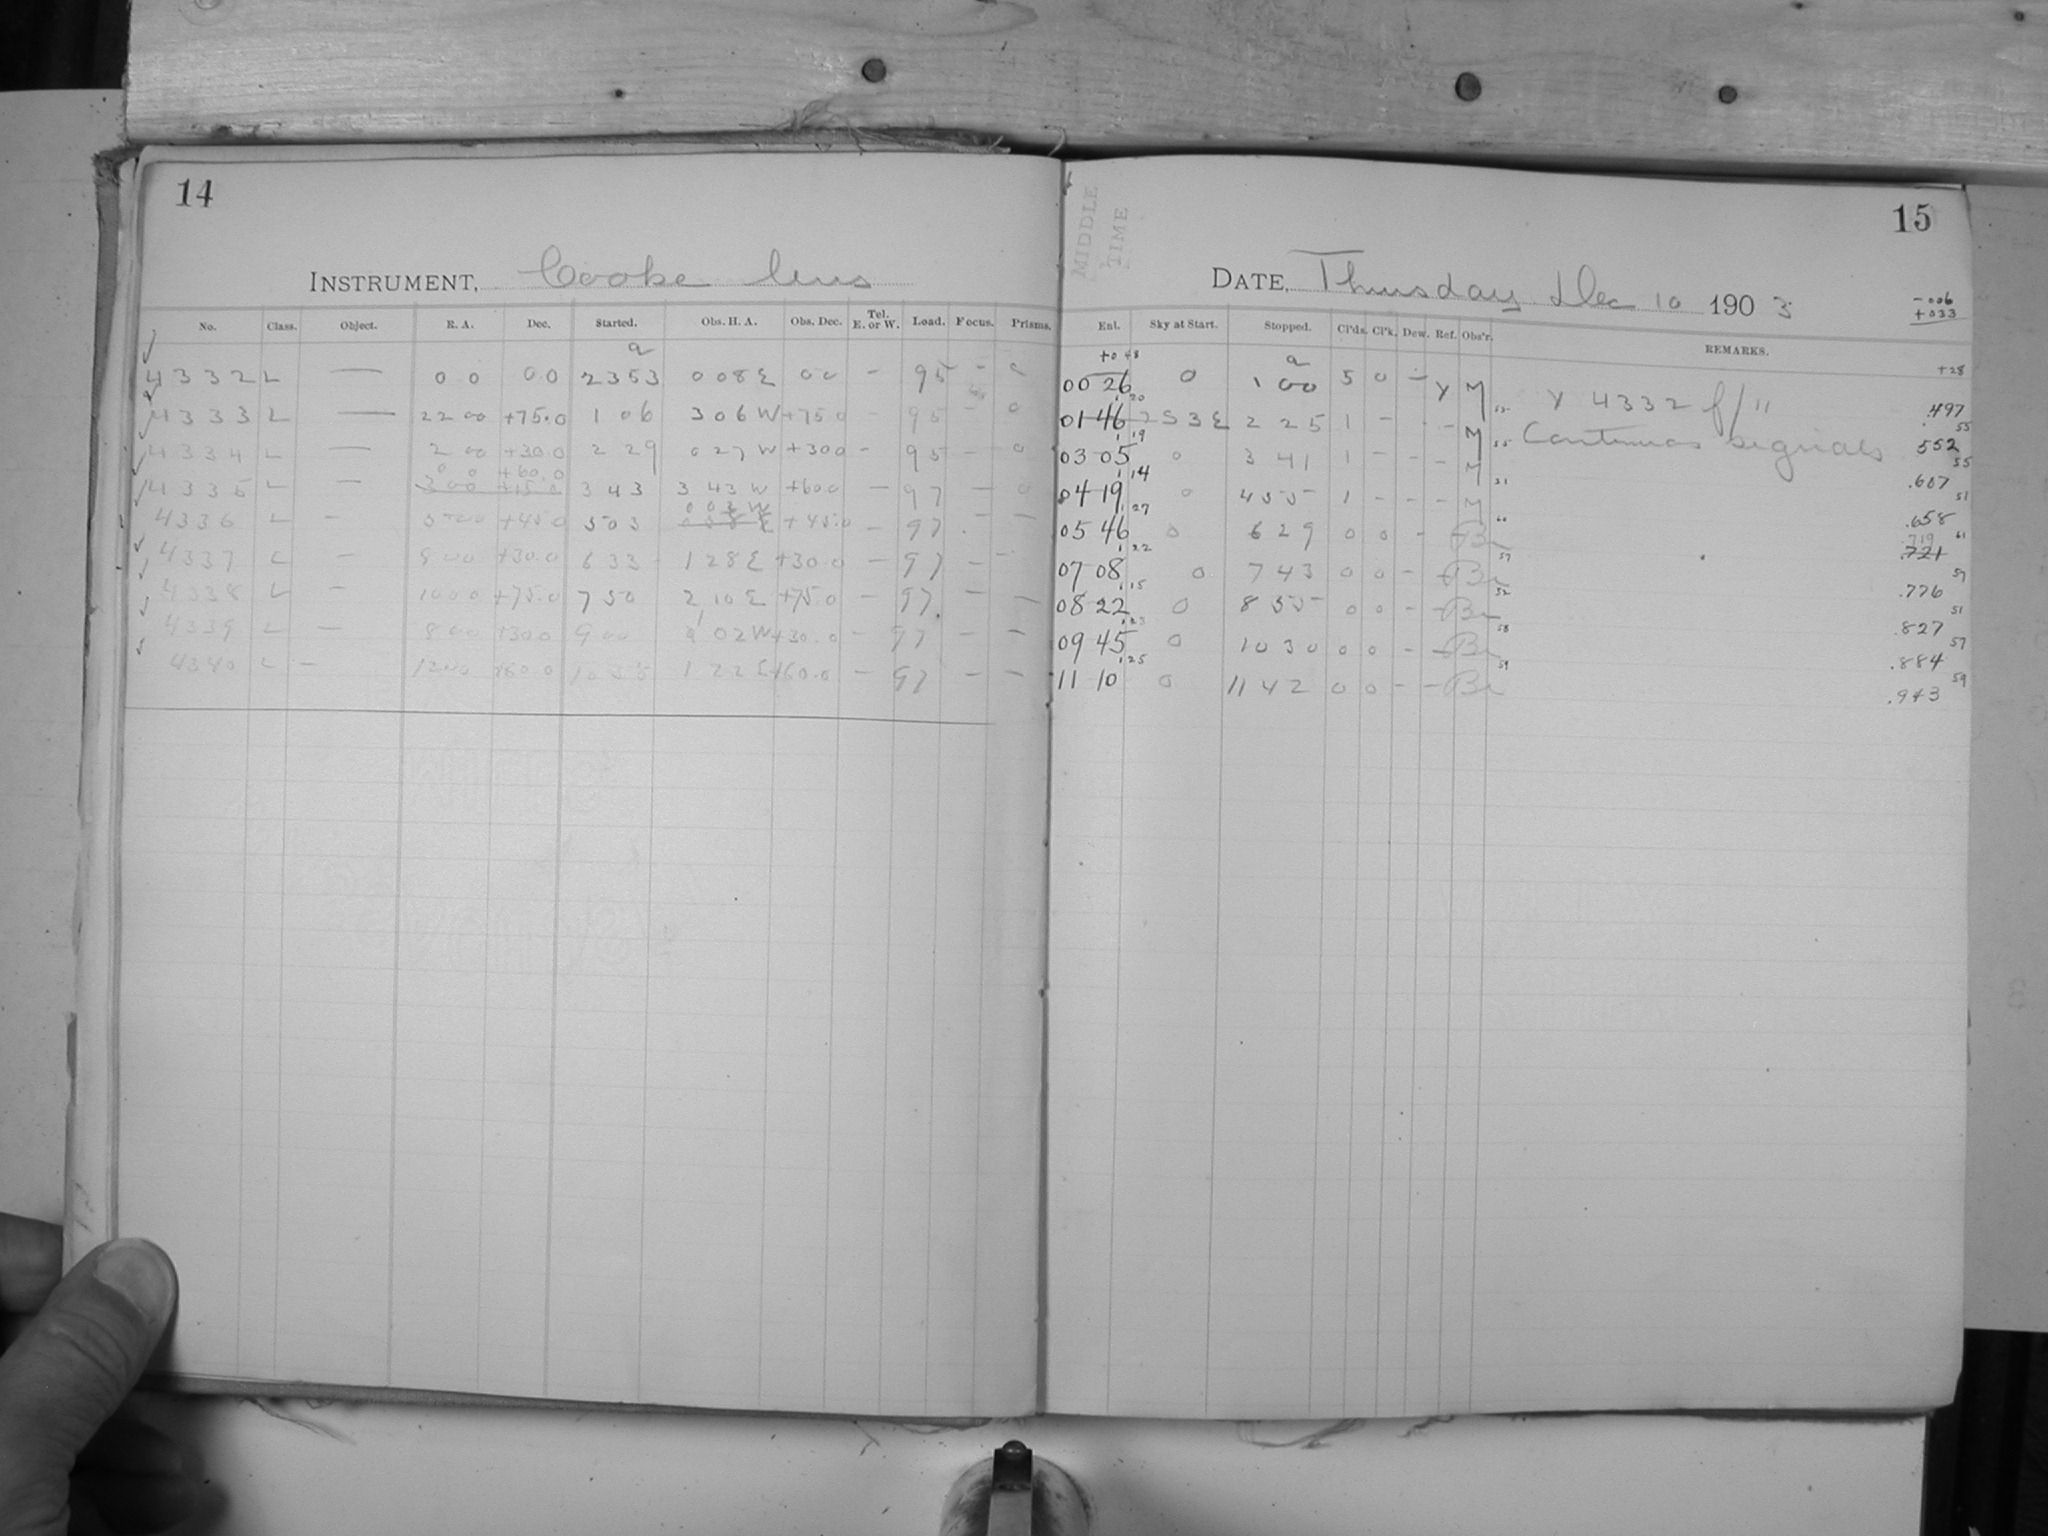 14
INSTRUMENT, Cooke lens
No. Class. Object. R. A. Dec. Started. Obs. H. A. Obs. Dec. Tel. E. or W. Load. Focus. Prisms.
a
4332 L — 0 0 0 0 2353 0 08 E 0 0 - 95 - 0
4333 L — 22 00 +75.0 1 06 3 06 W +75 0 - 95 - 0
4334 L — 2 00 +30.0 2 29 0 27 W +30 0 - 95 - 0
0 0 +60.0
4335 L — 3 00 +15.0 3 43 3 43 W +60 0 - 97 - 0
4336 L — 5 00 +45.0 5 03 +45.0 - 97 - -
4337 L — 8 00 +30.0 6 33 1 28 E +30.0 - 97 - -
4338 L — 10 00 +75.0 7 50 2 10 E +75.0 - 97 - -
4339 L — 8 00 +30.0 9 00 02 W +30.0 - 97 - -
4340 L — 12 00 +60.0 10 35 1 22 E +60.0 - 97 - -
15
MIDDLE TIME
DATE, Thursday Dec 10 1903
-006
+033
Enl. Sky at Start. Stopped. Cl'ds. Cl'k. Dew. Ref. Obs'r. REMARKS.
+28
a
00 26 0 1 00 5 0 - Y M Y 4332 f/11 .497
55
01 46 2 53 E 2 25 1 - - - M Continuos signals 552
55
03 05 0 3 41 1 - - - M .607
51
04 19 0 4 55 1 - - - M .658
.719 61
05 46 0 6 29 0 0 - - Br .721
57
07 08 0 7 43 0 0 - - Br .776
51
08 22 0 8 55 0 0 - - Br .827
57
09 45 0 10 30 0 0 - - Br .884
59
11 10 0 11 42 0 0 - - Br .943